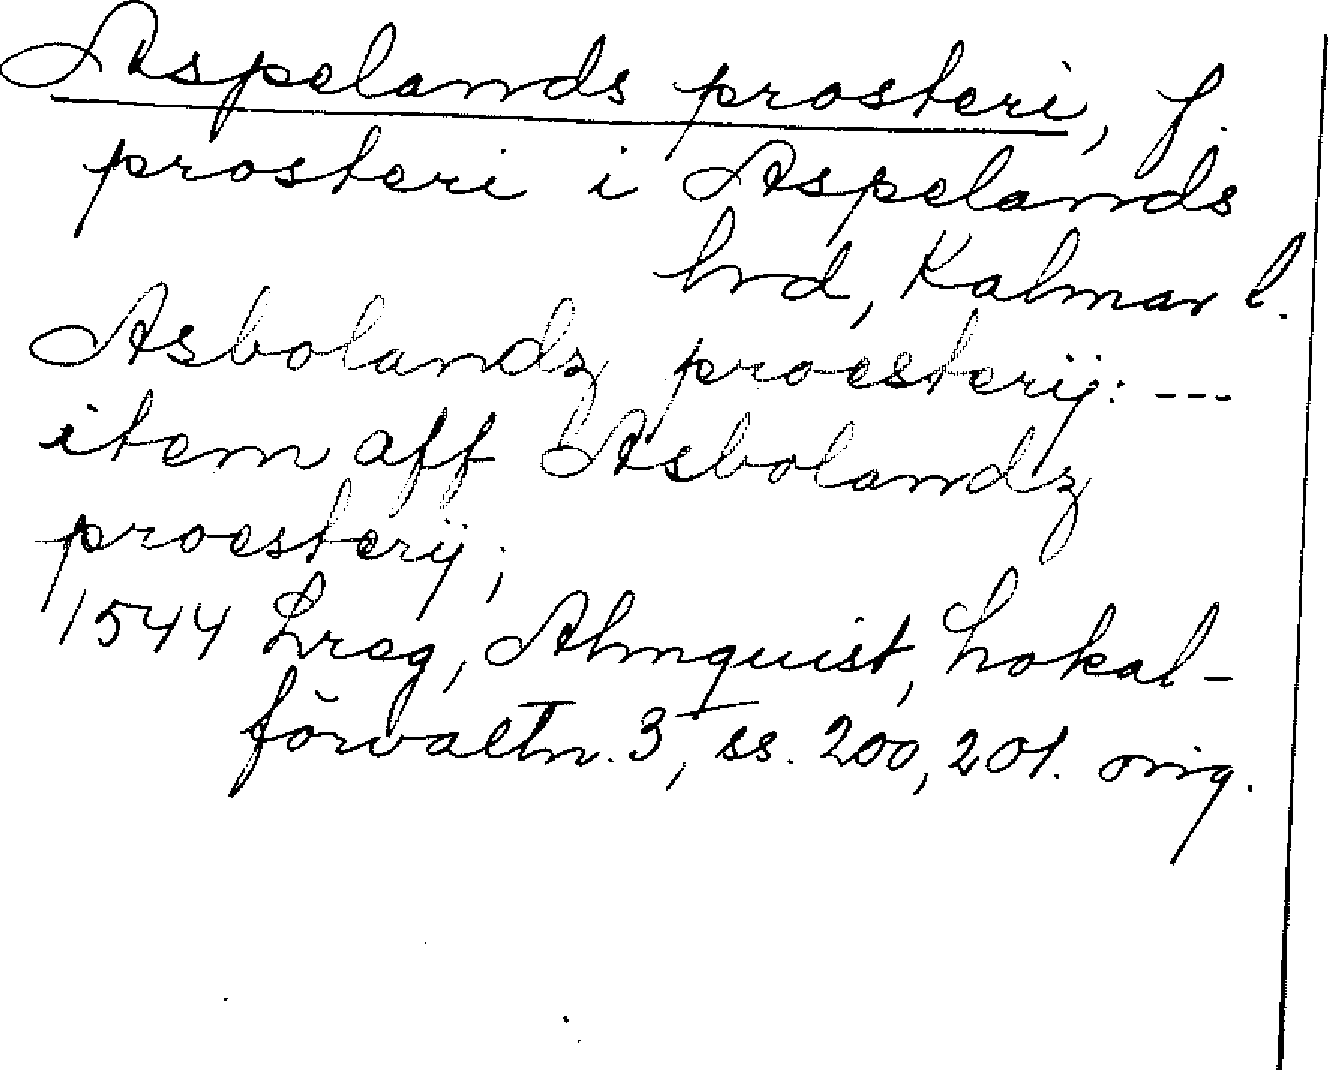 Aspelands prosteri, f.
prosteri i Aspelands
hrd, Kalmar l.
Asbolandz proesterij: ---
item aff Asbolandz
proesterij;
1544 Lreg, Almquist, Lokal-
förvaltn. 3, ss. 200, 201. orig.